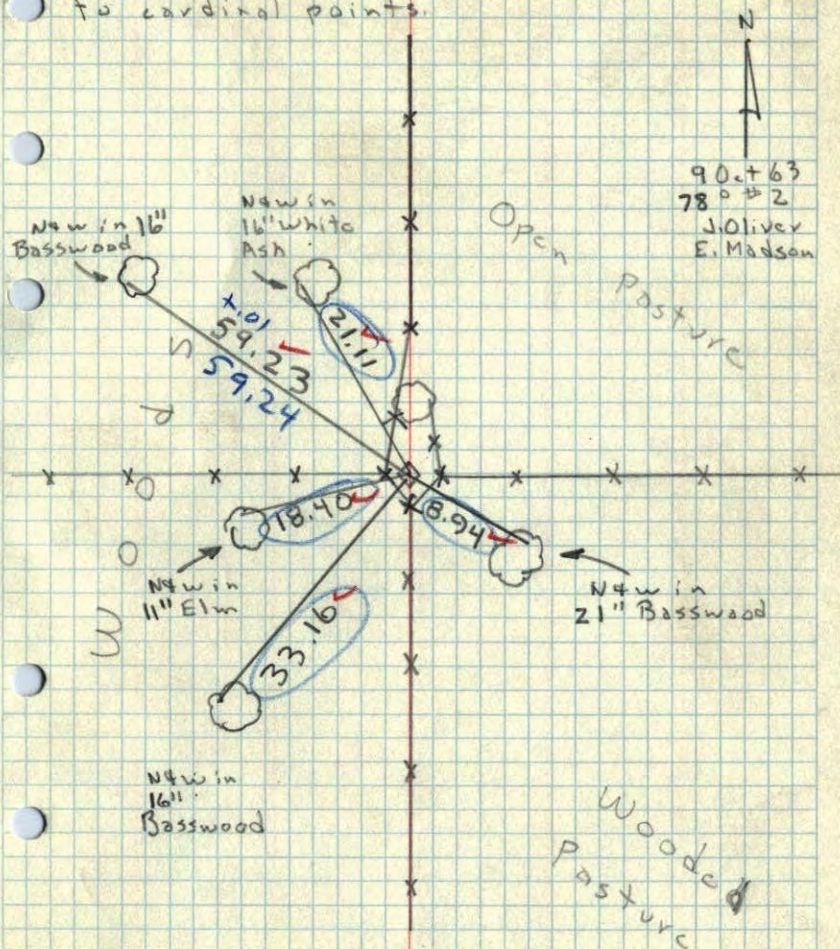 to cardinal points.
N
9 Oct 63
78° #2
J. Oliver
E. Madson
N&W in
16" White
Ash
N&W in 16"
Basswood
Open Pasture
+.01
59.23
59.24
21.11
Woods
18.40
8.94
N&W in
11" Elm
N&W in
21" Basswood
33.16
N&W in
16"
Basswood
Wooded
Pasture